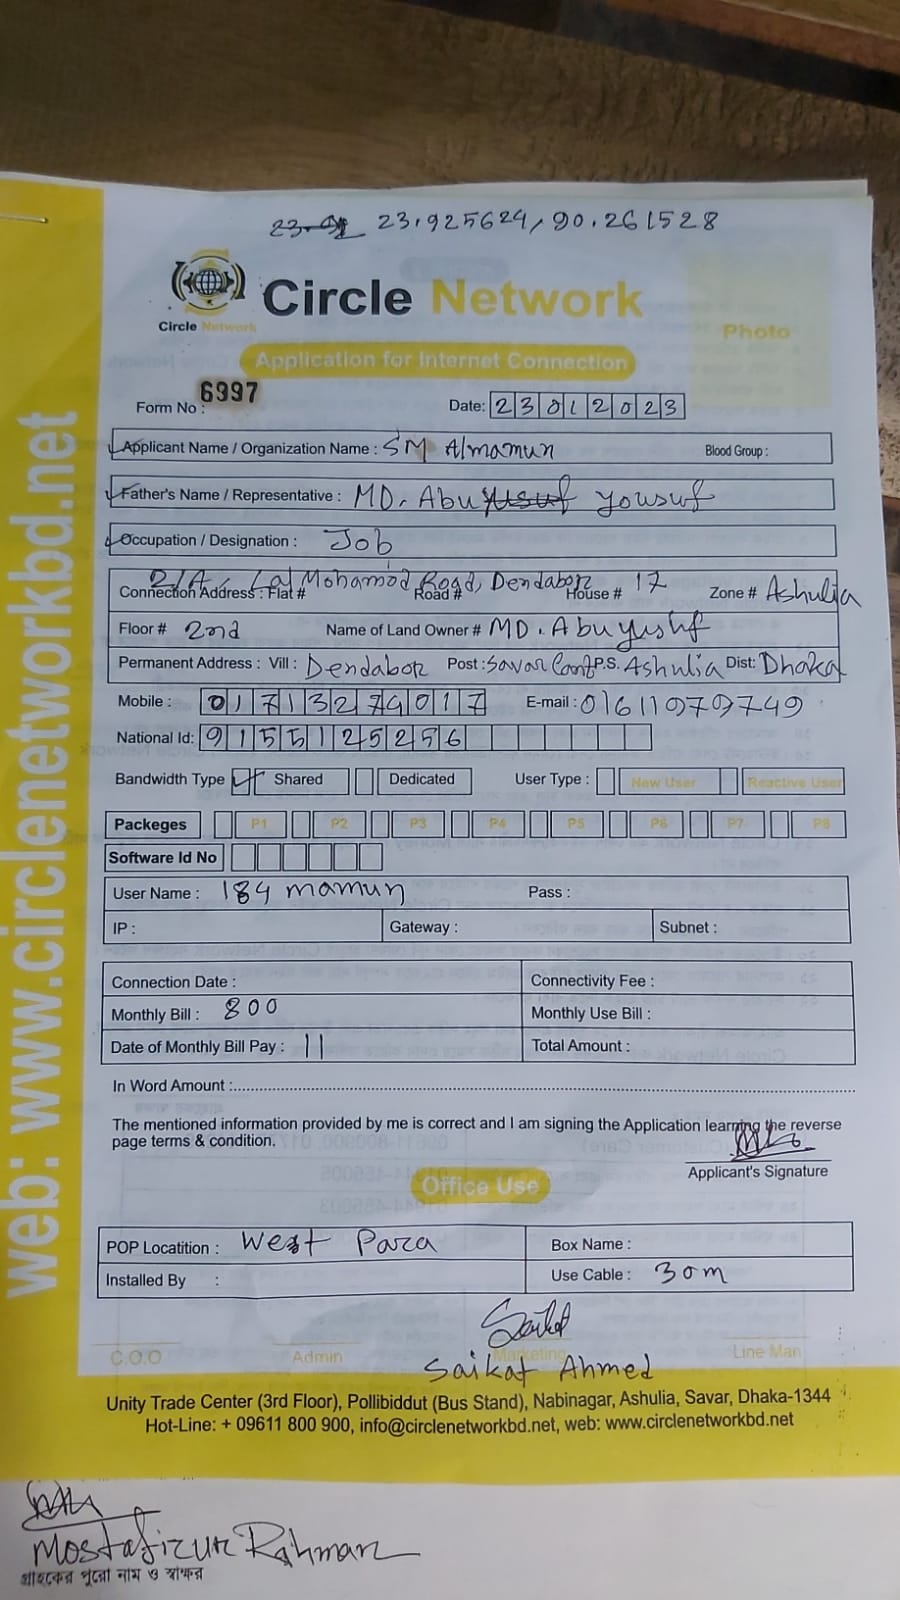 23.925624, 90.261528
Circle Network
Circle Network
Photo
Application for Internet Connection
Form No : 6997
Date: 23012023
Applicant Name / Organization Name : SM Almamun Blood Group :
Father's Name / Representative : MD. Abu Yousuf
Occupation / Designation : Job
2/A, Lal Mohamod Road, Dendabor 17
Connection Address : Flat # Road # House # Zone # Ashulia
Floor # 2nd Name of Land Owner # MD. Abu yusuf
Permanent Address : Vill : Dendabor Post : Savar Cant P.S. Ashulia Dist: Dhaka
Mobile : 01713274017 E-mail : 01611979749
National Id: 9155125256
Bandwidth Type Shared Dedicated User Type : New User Reactive User
Packeges P1 P2 P3 P4 P5 P6 P7 P8
Software Id No
User Name : 184 mamun Pass :
IP : Gateway : Subnet :
Connection Date : Connectivity Fee :
Monthly Bill : 800 Monthly Use Bill :
Date of Monthly Bill Pay : 11 Total Amount :
In Word Amount :
The mentioned information provided by me is correct and I am signing the Application learning the reverse
page terms & condition.
Applicant's Signature
Office Use
POP Locatition : West Para Box Name :
Installed By : Use Cable : 30m
C.O.O Admin Marketing Line Man
Saikat Ahmed
Unity Trade Center (3rd Floor), Pollibiddut (Bus Stand), Nabinagar, Ashulia, Savar, Dhaka-1344
Hot-Line: + 09611 800 900, info@circlenetworkbd.net, web: www.circlenetworkbd.net
Mostafizur Rahman
গ্রাহকের পুরো নাম ও স্বাক্ষর
web: www.circlenetworkbd.net